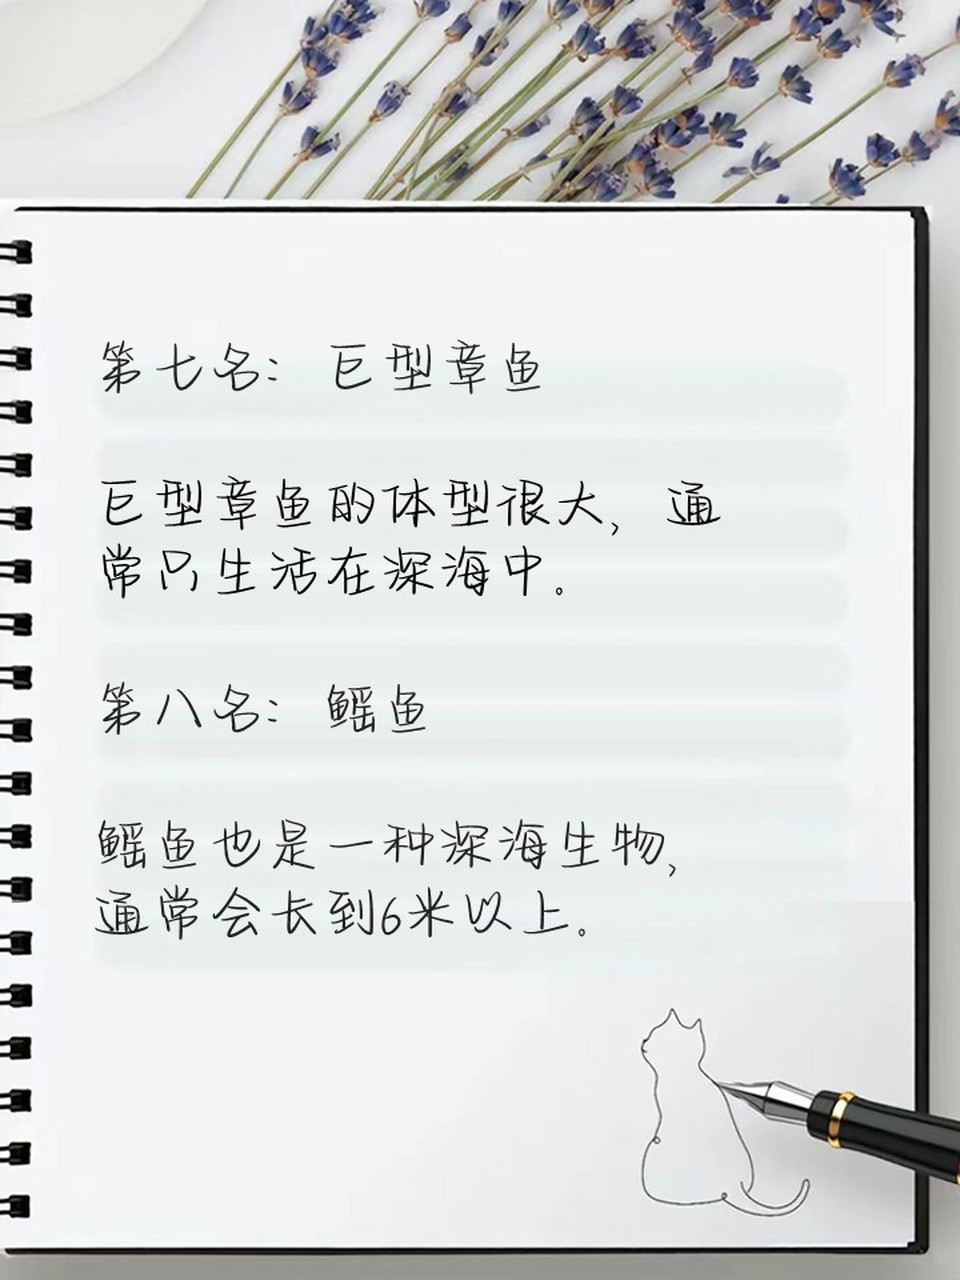 第七名：巨型章鱼
巨型章鱼的体型很大，通
常只生活在深海中。
第八名：鳐鱼
鳐鱼也是一种深海生物，
通常会长到6米以上。